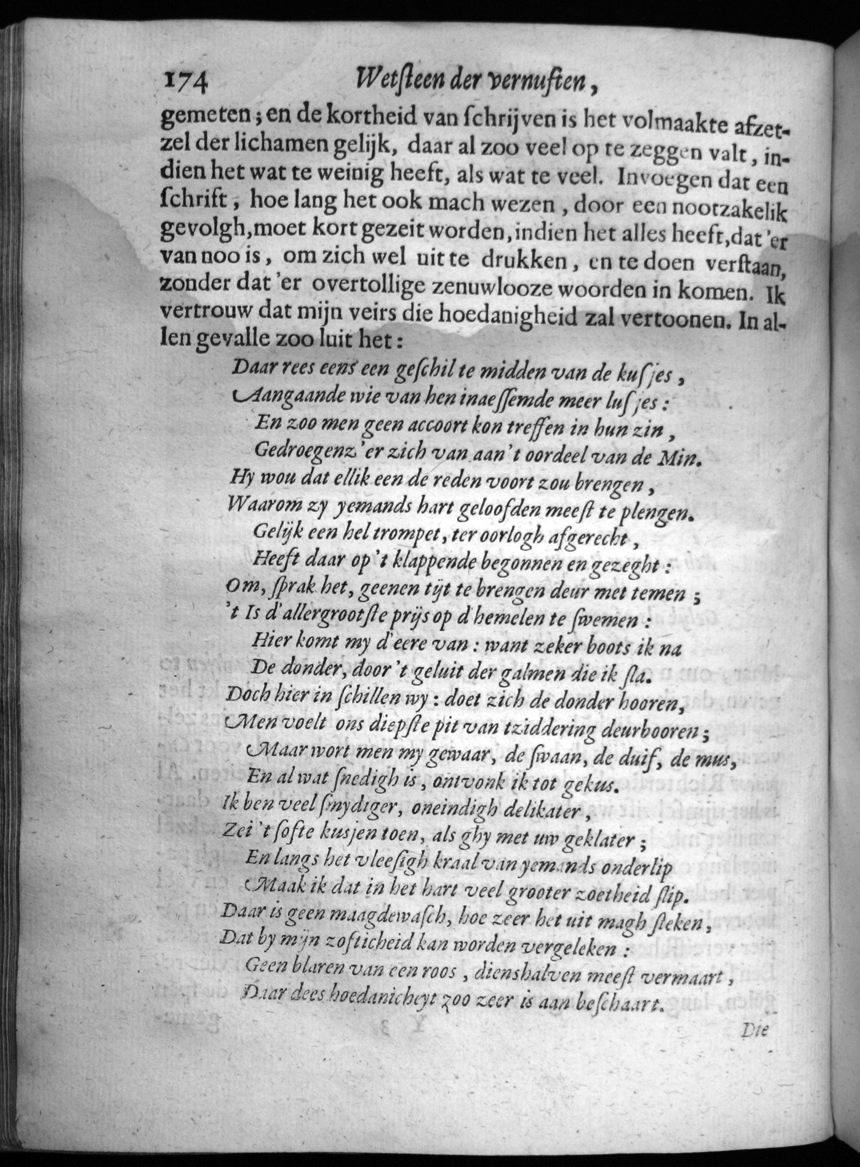 174 Wetſteen der vernuften,
gemeten; en de kortheid van ſchrijven is het volmaakte afzet-
zel der lichamen gelijk, daar al zoo veel op te zeggen valt, in-
dien het wat te weinig heeft, als wat te veel. Invoegen dat een
ſchrift, hoe lang het ook mach wezen, door een nootzakelik
gevolgh, moet kort gezeit worden, indien het alles heeft, dat 'er
van noo is, om zich wel uit te drukken, en te doen verſtaan,
zonder dat 'er overtollige zenuwlooze woorden in komen. Ik
vertrouw dat mijn veirs die hoedanigheid zal vertoonen. In al-
len gevalle zoo luit het:
Daar rees eens een geſchil te midden van de kuſjes,
Aangaande wie van hen inaeſſemde meer luſjes:
En zoo men geen accoort kon treffen in hun zin,
Gedroegenz'er zich van aan't oordeel van de Min.
Hy wou dat ellik een de reden voort zou brengen,
Waarom zy yemands hart geloofden meeſt te plengen.
Gelijk een hel trompet, ter oorlogh afgerecht,
Heeft daar op 't klappende begonnen en gezeght:
Om, ſprak het, geenen tijt te brengen deur met temen;
't Is d'allergrootſte prijs op d'hemelen te ſwemen:
Hier komt my d'eere van: want zeker boots ik na
De donder, door 't geluit der galmen die ik ſla.
Doch hier in ſchillen wy: doet zich de donder hooren,
Men voelt ons diepſte pit van tziddering deurbooren;
Maar wort men my gewaar, de ſwaan, de duif, de mus,
En al wat ſnedigh is, ontvonk ik tot gekus.
Ik ben veel ſnydiger, oneindigh delikater,
Zei 't ſofte kusjen toen, als ghy met uw geklater;
En langs het vleeſigh kraal van yemands onderlip
Maak ik dat in het hart veel grooter zoetheid ſlip.
Daar is geen maagdewaſch, hoe zeer het uit magh ſteken,
Dat by mijn zofticheid kan worden vergeleken:
Geen blaren van een roos, dienshalven meeſt vermaart,
Daar dees hoedanicheyt zoo zeer is aan beſchaart.
Die